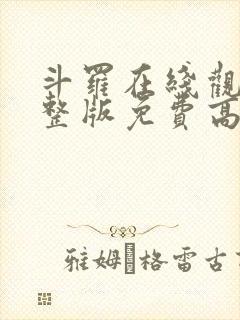 斗羅在綫觀
整版免費高
雅姆•格雷古